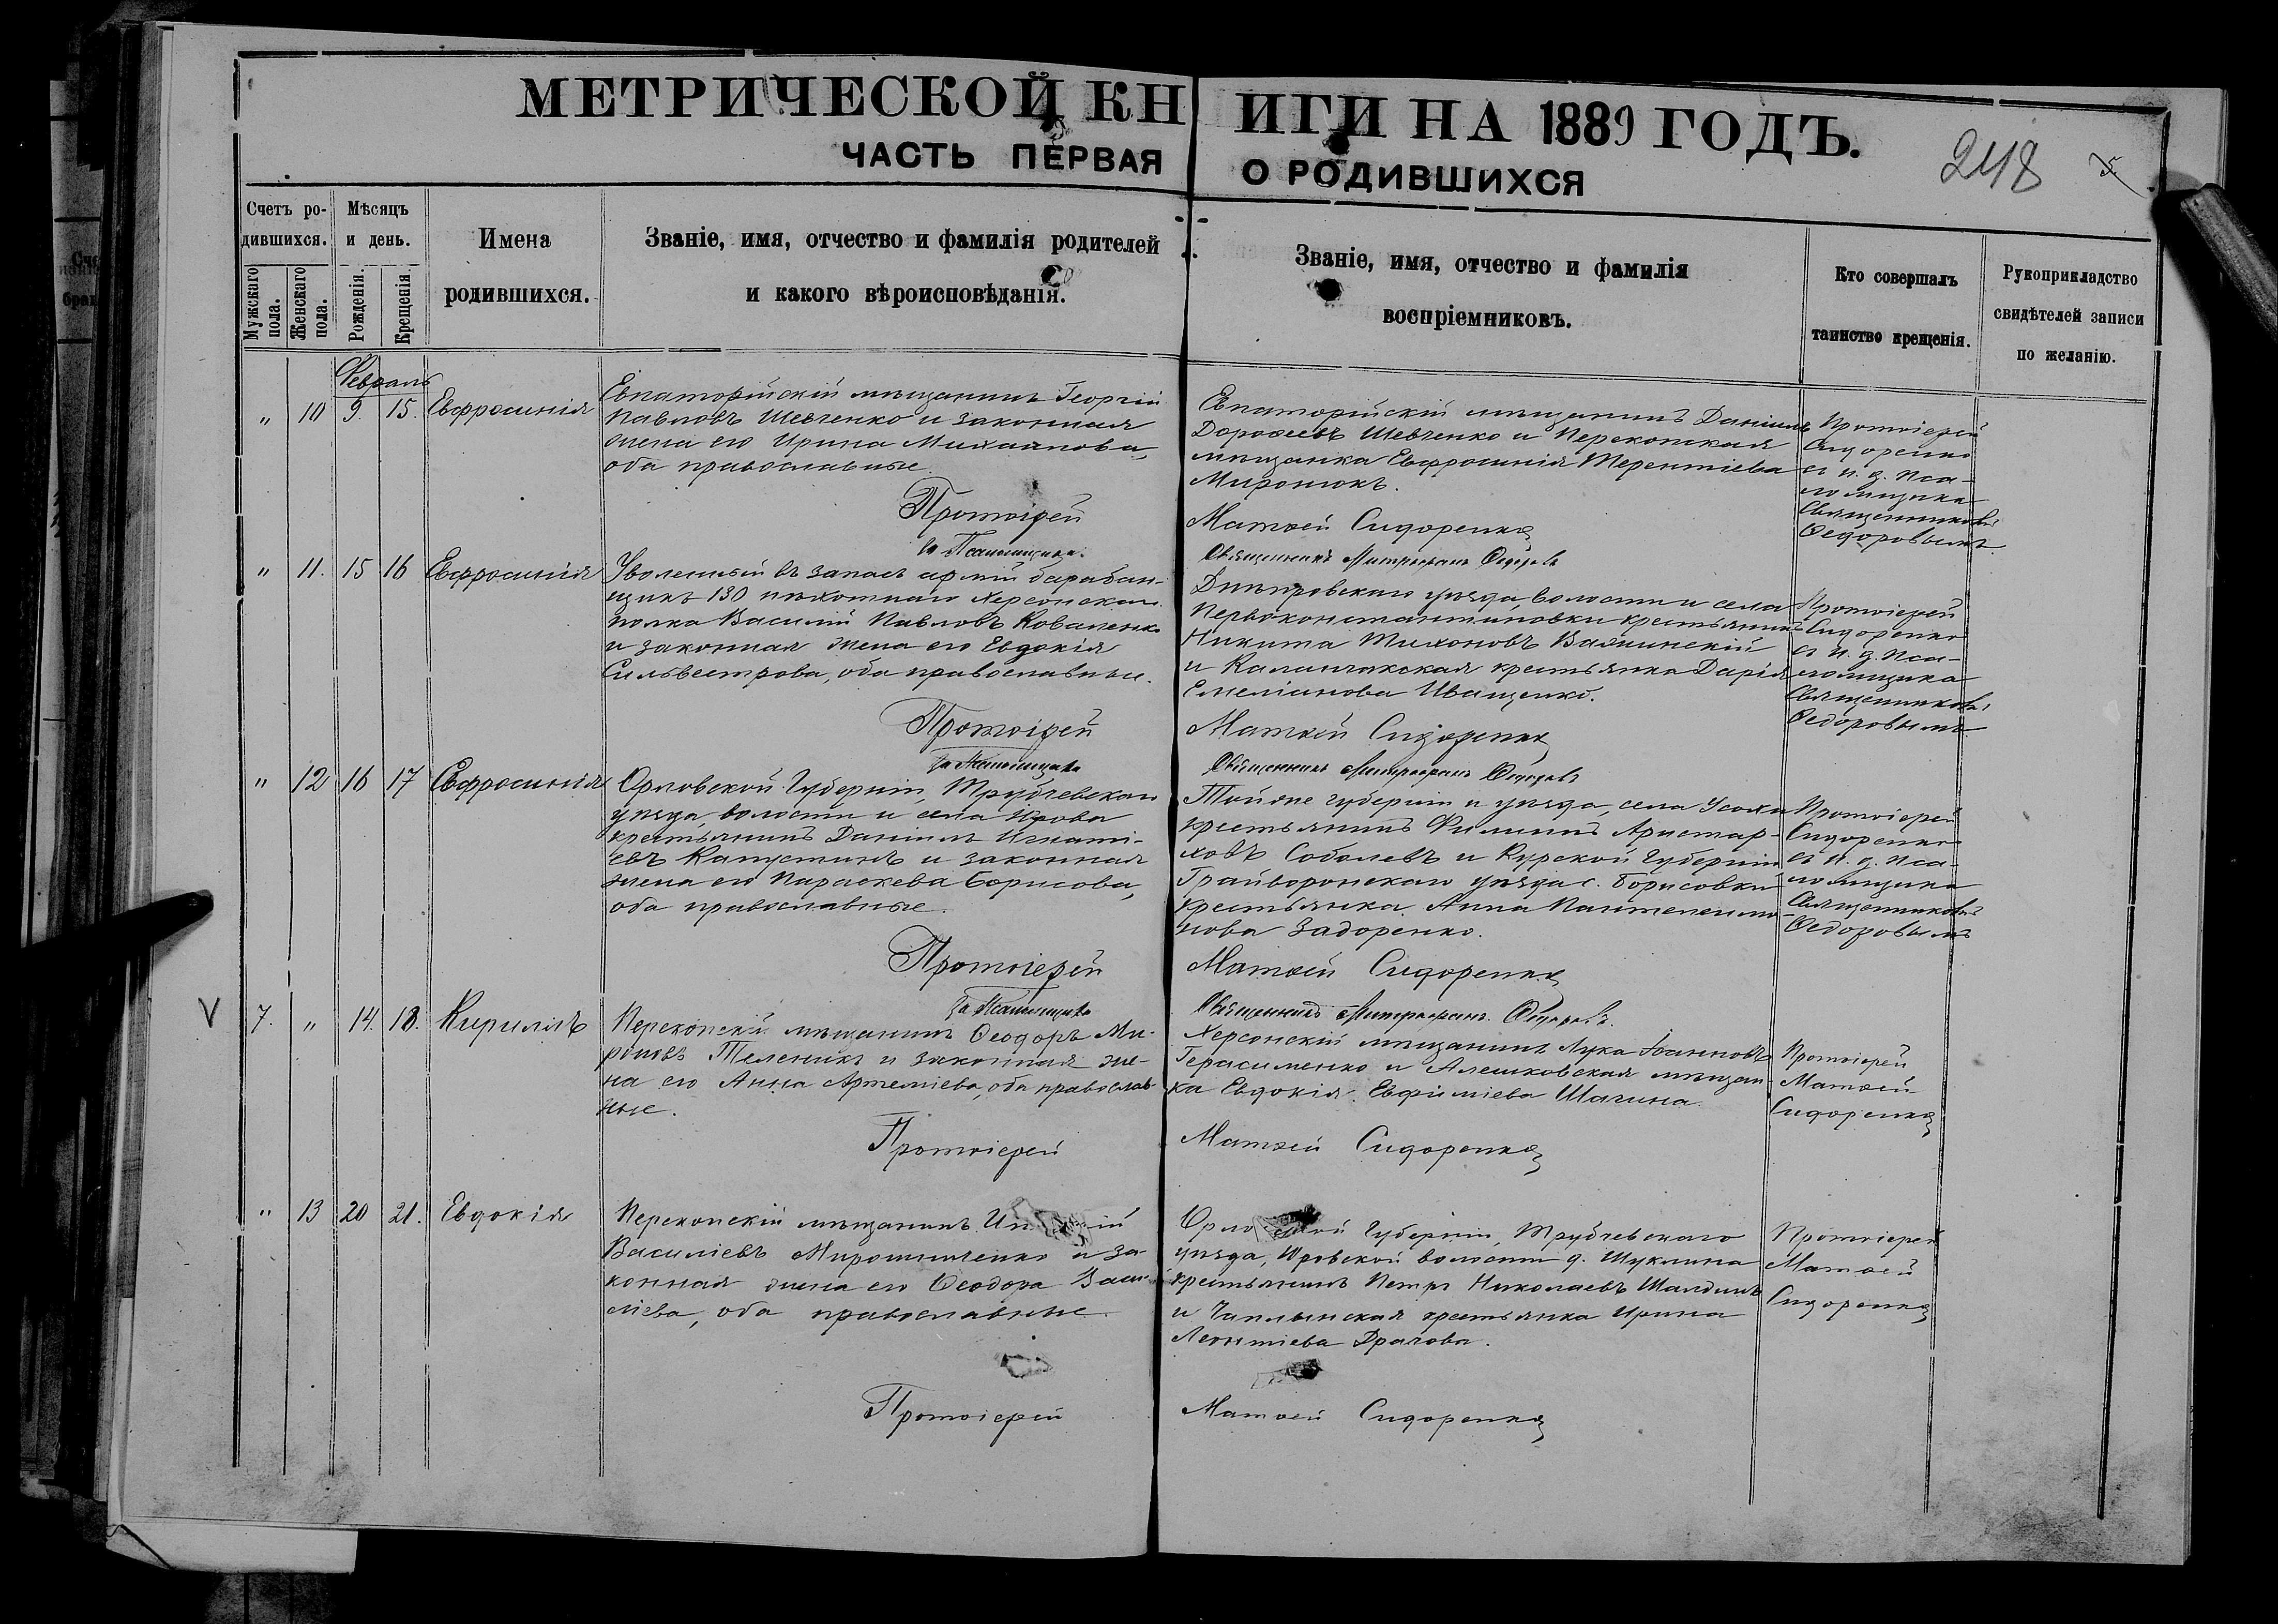 МЕТРИЧЕСКОЙ КНИГИ НА 1889 ГОДЪ.
ЧАСТЬ ПЕРВАЯ О РОДИВШИХСЯ
248
Счетъ родившихся.
Мужскаго пола.
Женскаго пола.
Мѣсяцъ и день.
Рожденія.
Крещенія.
Имена родившихся.
Званіе, имя, отчество и фамилія родителей
и какого вѣроисповѣданія.
Званіе, имя, отчество и фамилія
воспріемниковъ.
Кто совершалъ
таинство крещенія.
Рукоприкладство
свидѣтелей записи
по желанію.
Февраль
" 10 9. 15. Евфросинія
Евпаторійскій мѣщанинъ Георгій
Павловъ Шевченко и законная
жена его Ирина Михаилова,
оба православные.
Евпаторійскій мѣщанинъ Даніилъ
Дорофеевъ Шевченко и Перекопская
мѣщанка Евфросинія Терентіева
Миронюкъ.
Протоіерей
Сидоренко
съ и. д. пса-
ломщика
Священникомъ
Ѳедоровымъ.
Протоіерей Матѳей Сидоренко
За Псаломщика Священникъ Митрофанъ Ѳедоровъ
" 11. 15 16 Евфросинія
Уволенный въ запасъ арміи барабан-
щикъ 130 пѣхотнаго Херсонскаго
полка Василій Павловъ Коваленко
и законная жена его Евдокія
Сильвестрова, оба православные.
Днѣпровскаго уѣзда, волости и села
Первоконстантиновки крестьянинъ
Никита Тихоновъ
и Каланчакская крестьянка Дарія
Емеліанова Иващенко.
Протоіерей
Сидоренко
съ и. д. пса-
ломщика
Священникомъ
Ѳедоровымъ
Протоіерей Матѳей Сидоренко
За Псаломщика Священникъ Митрофанъ Ѳедоровъ
" 12 16 17 Евфросинія
Орловской Губерніи, Трубчевскаго
уѣзда, волости и села
крестьянинъ Даніилъ Игнаті-
евъ Капустинъ и законная
жена его Параскева Борисова,
оба православные.
Тойже губерніи и уѣзда, села Усоха
крестьянинъ Филиппъ Аристар-
ховъ Соболевъ и Курской Губерніи
Грайворонскаго уѣзда с. Борисовки
крестьянка Анна Пантелеимо-
нова Задоренко.
Протоіерей
Сидоренко
съ и. д. пса-
ломщика
Священникомъ
Ѳедоровымъ
Протоіерей Матѳей Сидоренко
За Псаломщика Священникъ Митрофанъ Ѳедоровъ.
V 7. " 14. 18. Кириллъ
Перекопскій мѣщанинъ Ѳеодоръ Ми-
роновъ Теленикъ и законная же-
на его Анна Артеміева, оба православ-
ные.
Херсонскій мѣщанинъ Лука Іоанновъ
Герасименко и Алешковская мѣщан-
ка Евдокія Евфиміева Шагина.
Протоіерей
Матѳей
Сидоренко
Протоіерей Матѳей Сидоренко
" 13 20 21. Евдокія
Перекопскій мѣщанинъ
Василіевъ Мирошниченко и за-
конная жена его Ѳеодора Васи-
ліева, оба православные.
Губерніи, Трубчевскаго
уѣзда, волости д.
крестьянинъ Петръ Николаевъ Шалдинъ
и Чаплынская крестьянка Ирина
Леонтіева
Протоіерей
Матѳей
Сидоренко
Протоіерей Матѳей Сидоренко